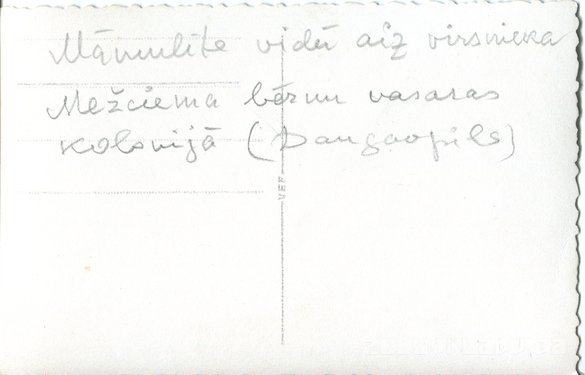 Māmulīte vidū aiz virsnieka
Mežciema bērnu vasaras
kolonijā (Daugavpils)
VEF